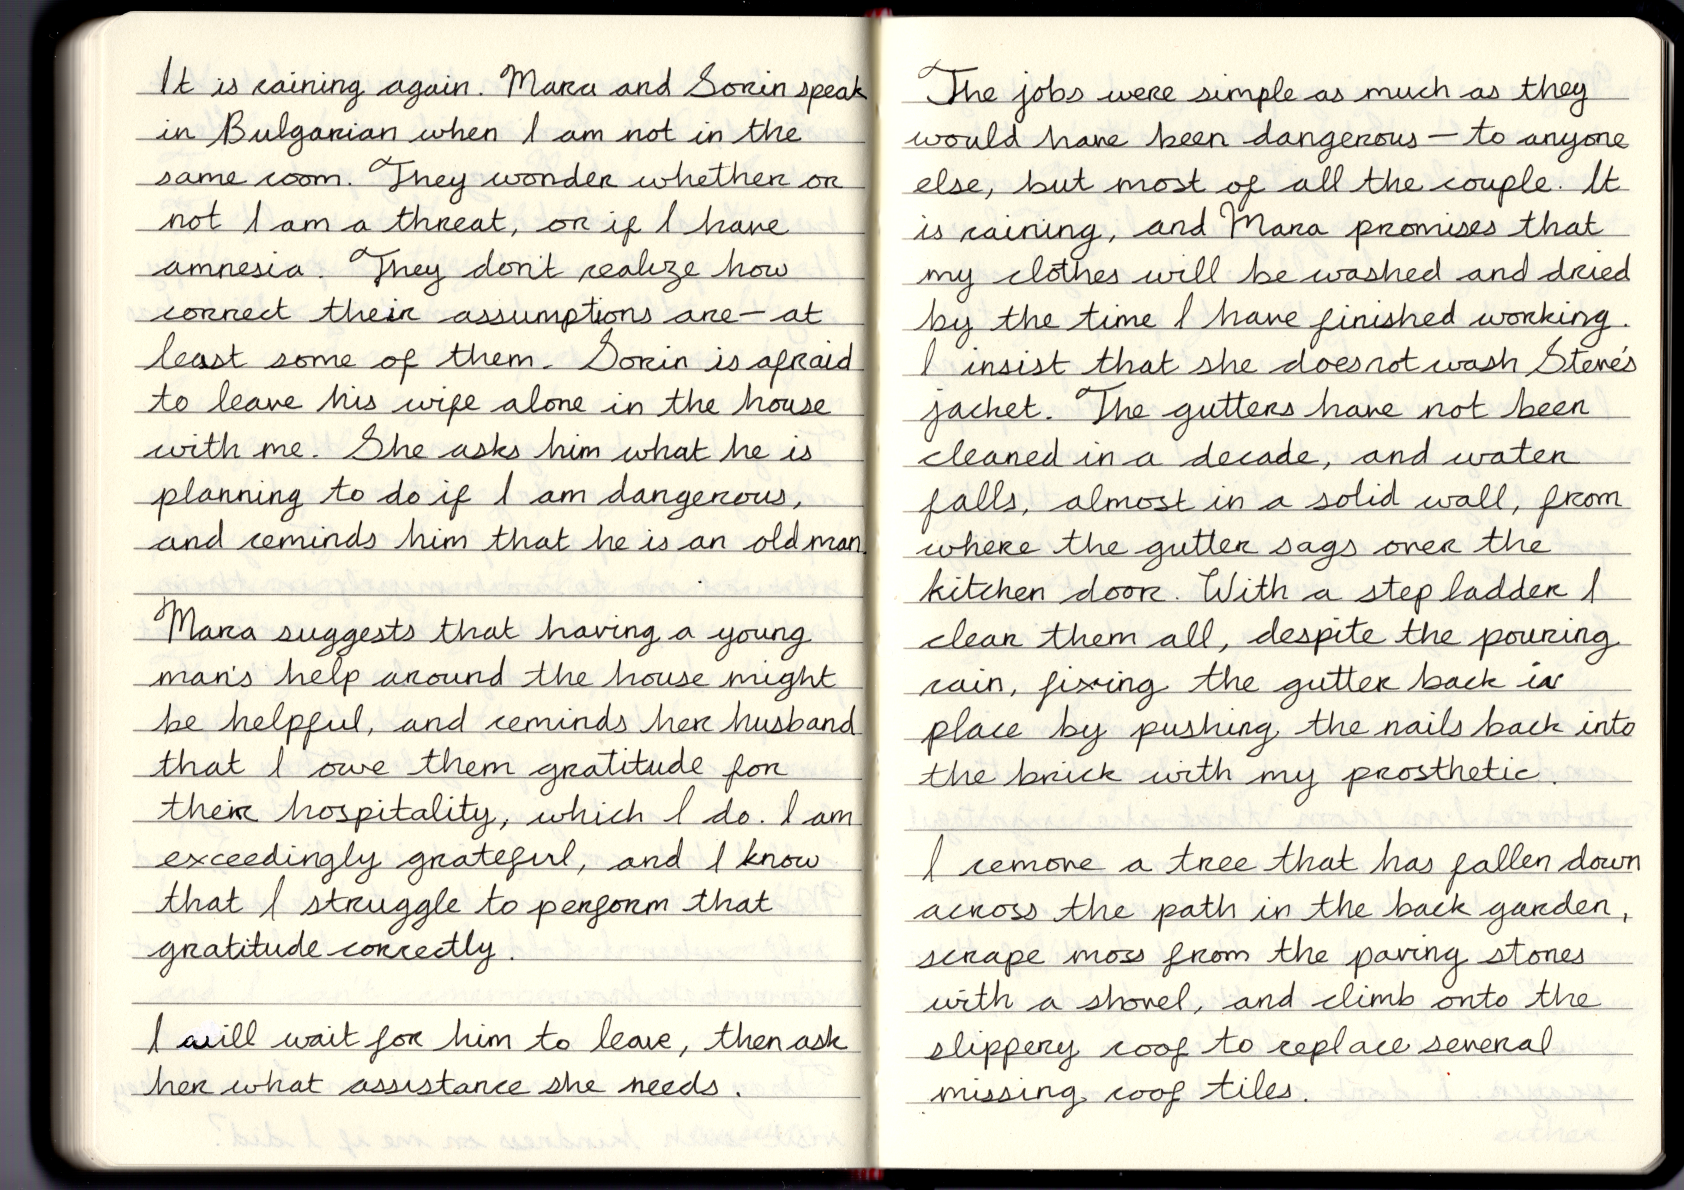 It is raining again. Mara and Sorin speak
in Bulgarian when I am not in the
same room. They wonder whether or
not I am a threat, or if I have
amnesia. They don't realize how
correct their assumptions are — at
least some of them. Sorin is afraid
to leave his wife alone in the house
with me. She asks him what he is
planning to do if I am dangerous,
and reminds him that he is an old man.
Mara suggests that having a young
man's help around the house might
be helpful, and reminds her husband
that I owe them gratitude for
their hospitality, which I do. I am
exceedingly grateful, and I know
that I struggle to perform that
gratitude correctly.
I will wait for him to leave, then ask
her what assistance she needs.
The jobs were simple as much as they
would have been dangerous — to anyone
else, but most of all the couple. It
is raining, and Mara promises that
my clothes will be washed and dried
by the time I have finished working.
I insist that she does not wash Steve's
jacket. The gutters have not been
cleaned in a decade, and water
falls, almost in a solid wall, from
where the gutter sags over the
kitchen door. With a step ladder I
clear them all, despite the pouring
rain, fixing the gutter back in
place by pushing the nails back into
the brick with my prosthetic.
I remove a tree that has fallen down
across the path in the back garden,
scrape moss from the paving stones
with a shovel, and climb onto the
slippery roof to replace several
missing roof tiles.